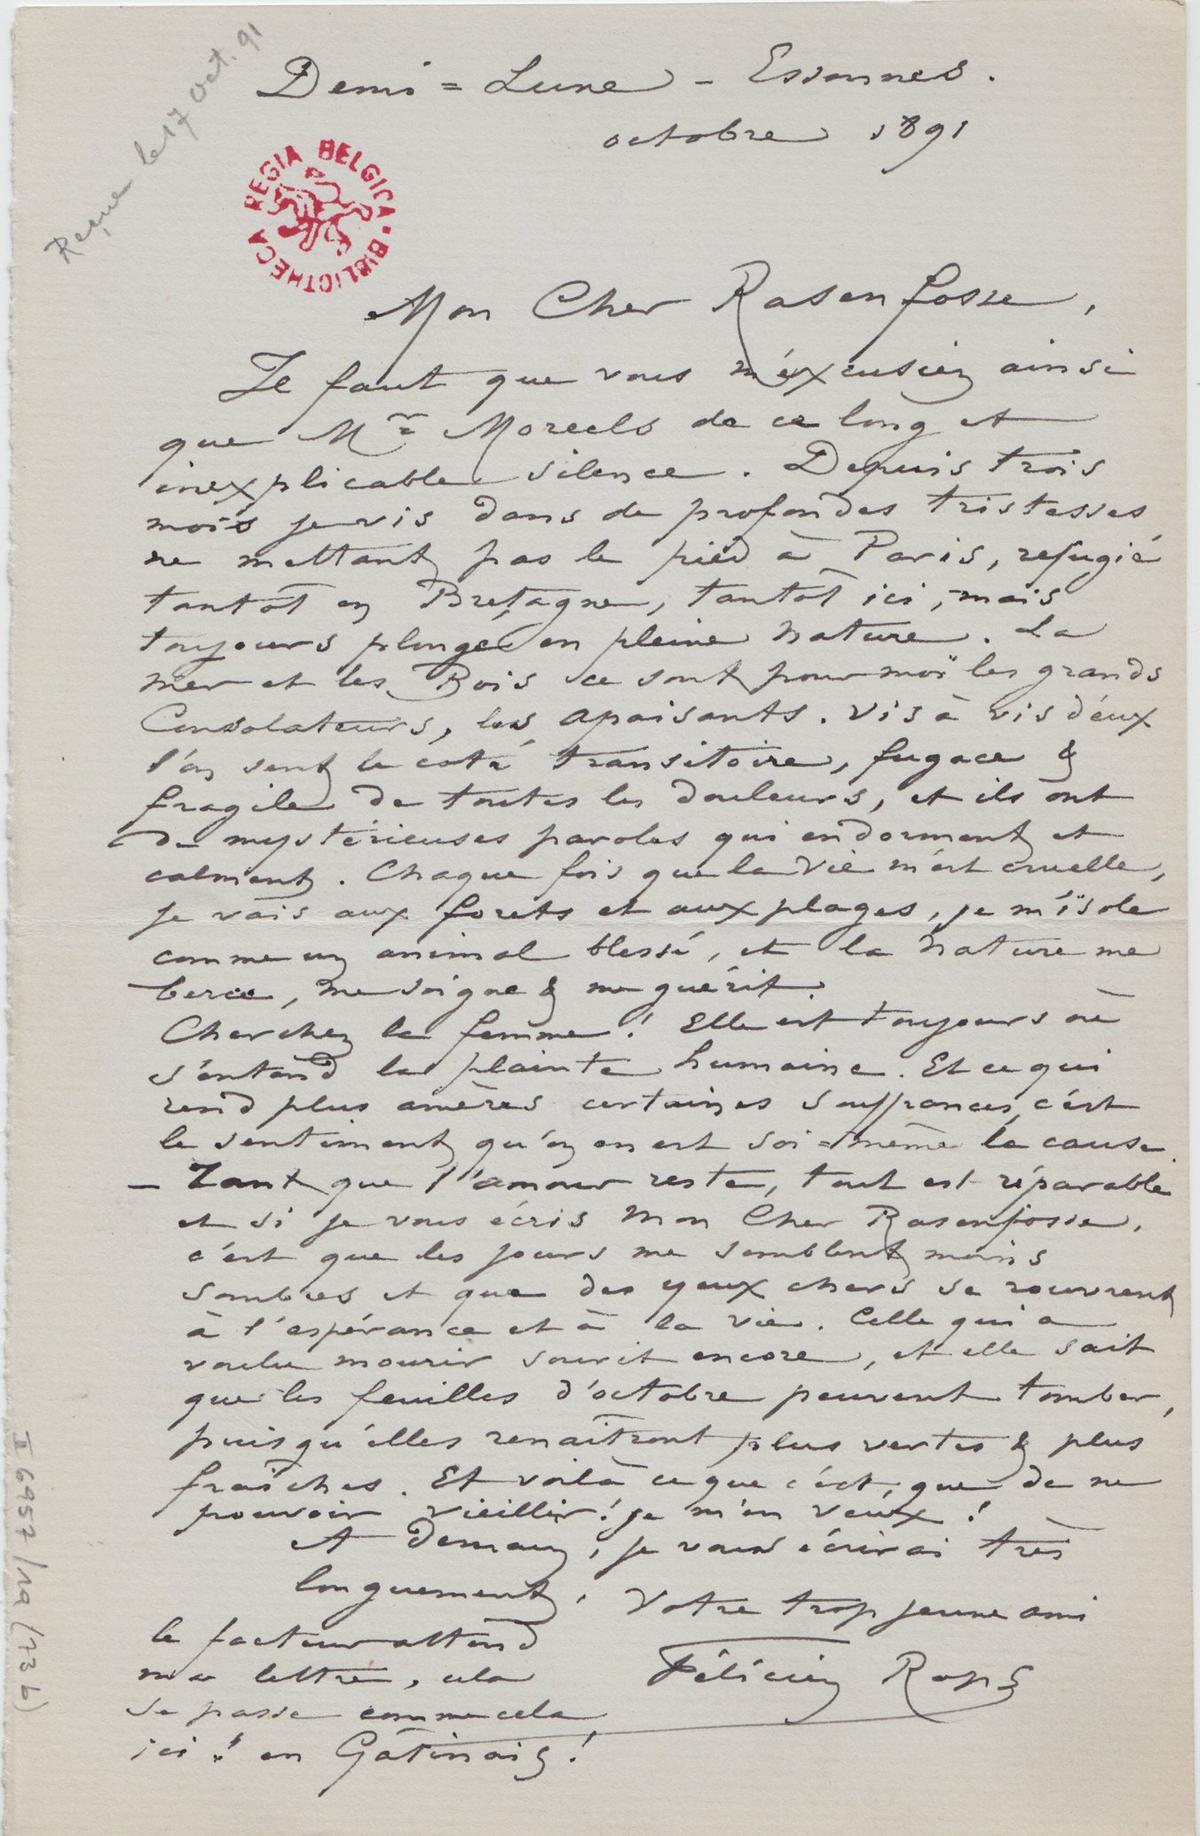 Reçue le 17 oct. 91
Demi=Lune – Essonnes.
octobre 1891
BIBLIOTHECA REGIA BELGICA
Mon Cher Rasenfosse,
Il faut que vous m'éxcusiez ainsi
que Mr Moreels de ce long et
inexplicable silence. Depuis trois
mois je vis dans de profondes tristesses
ne mettant pas le pied à Paris, refugié
tantôt en Bretagne, tantôt ici, mais
toujours plongé en pleine nature. La
mer et les Bois ce sont pour moi les grands
Consolateurs, les apaisants. Vis à vis d'eux
l'on sent le coté transitoire, fugace &
fragile de toutes les douleurs, et ils ont
de mystérieuses paroles qui endorment et
calment. Chaque fois que la vie m'est cruelle,
je vais aux forets et aux plages, je m'isole
comme un animal blessé, et la nature me
berce, me soigne & me guérit.
Cherchez la femme! Elle est toujours où
s'entend la plainte humaine. Et ce qui
rend plus amères certaines souffrances, c'est
le sentiment qu'on en est soi=même la cause.
– Tant que l'amour reste, tout est réparable
et si je vous écris Mon Cher Rasenfosse,
c'est que les jours me semblent moins
sombres et que des yeux chers se rouvrent
à l'espérance et à la vie. Celle qui a
voulu mourir sourit encore, et elle sait
que les feuilles d'octobre peuvent tomber,
puisqu'elles renaîtront plus vertes & plus
fraîches. Et voilà ce que c'est, que de ne
pouvoir vieillir! je m'en veux!
A Demain, je vous écrirai très
longuement. Votre trop jeune ami
Félicien Rops
le facteur attend
ma lettre, cela
se passe comme cela
ici! en Gâtinais!
II 6957/19 (73 b)